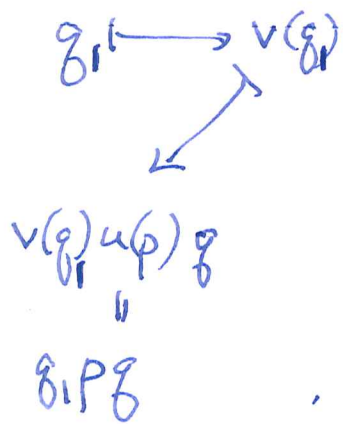 q₁ ⟼ v(q₁)
v(q₁)u(p)q
=
q₁pq